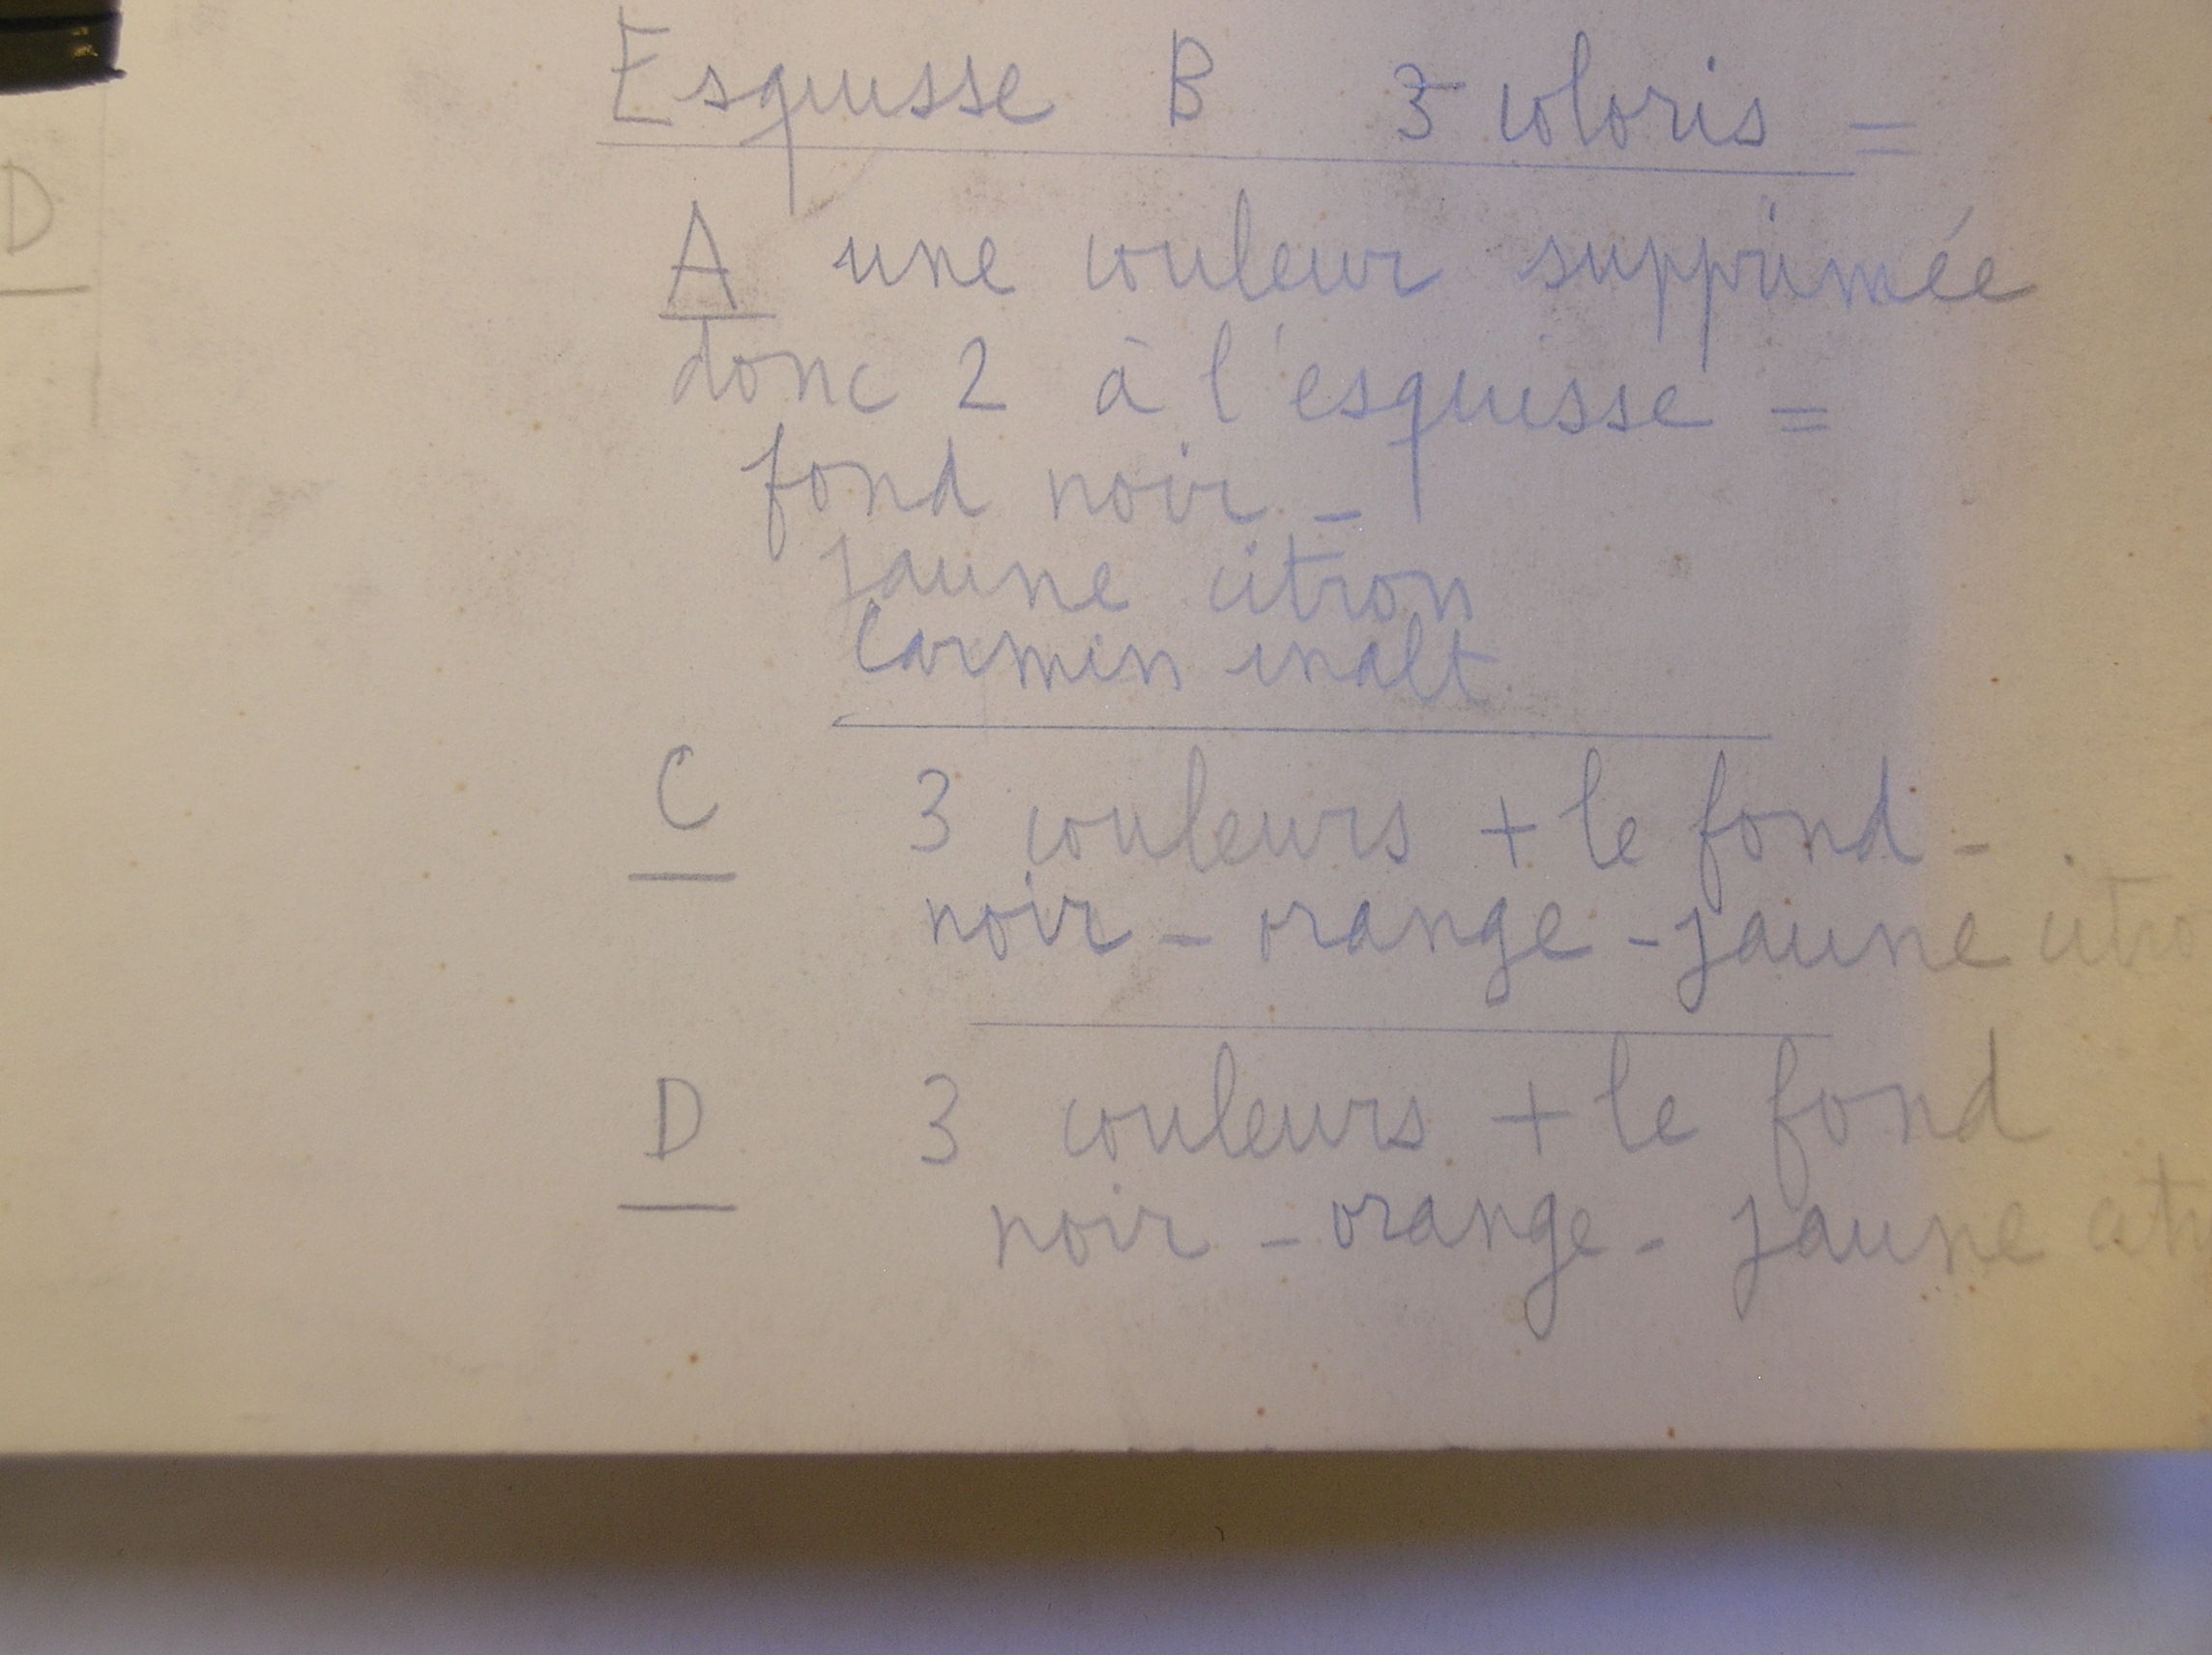 Esquisse B 3 coloris =
A une couleur supprimée
donc 2 à l'esquisse =
fond noir -
jaune citron
Carmin inalt.
C 3 couleurs + le fond -
noir - orange - jaune citro
D 3 couleurs + le fond
noir - orange - jaune citr
D